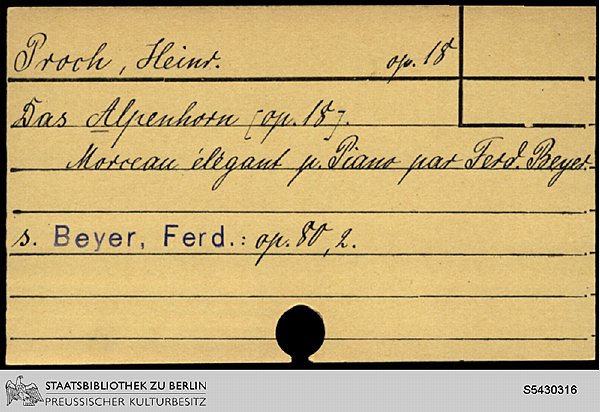 Proch, Heinr. op. 18
Das Alpenhorn [op. 18].
Morceau élégant p. Piano par Ferd. Beyer.
s. Beyer, Ferd.: op. 80, 2.
STAATSBIBLIOTHEK ZU BERLIN
PREUSSISCHER KULTURBESITZ
S5430316